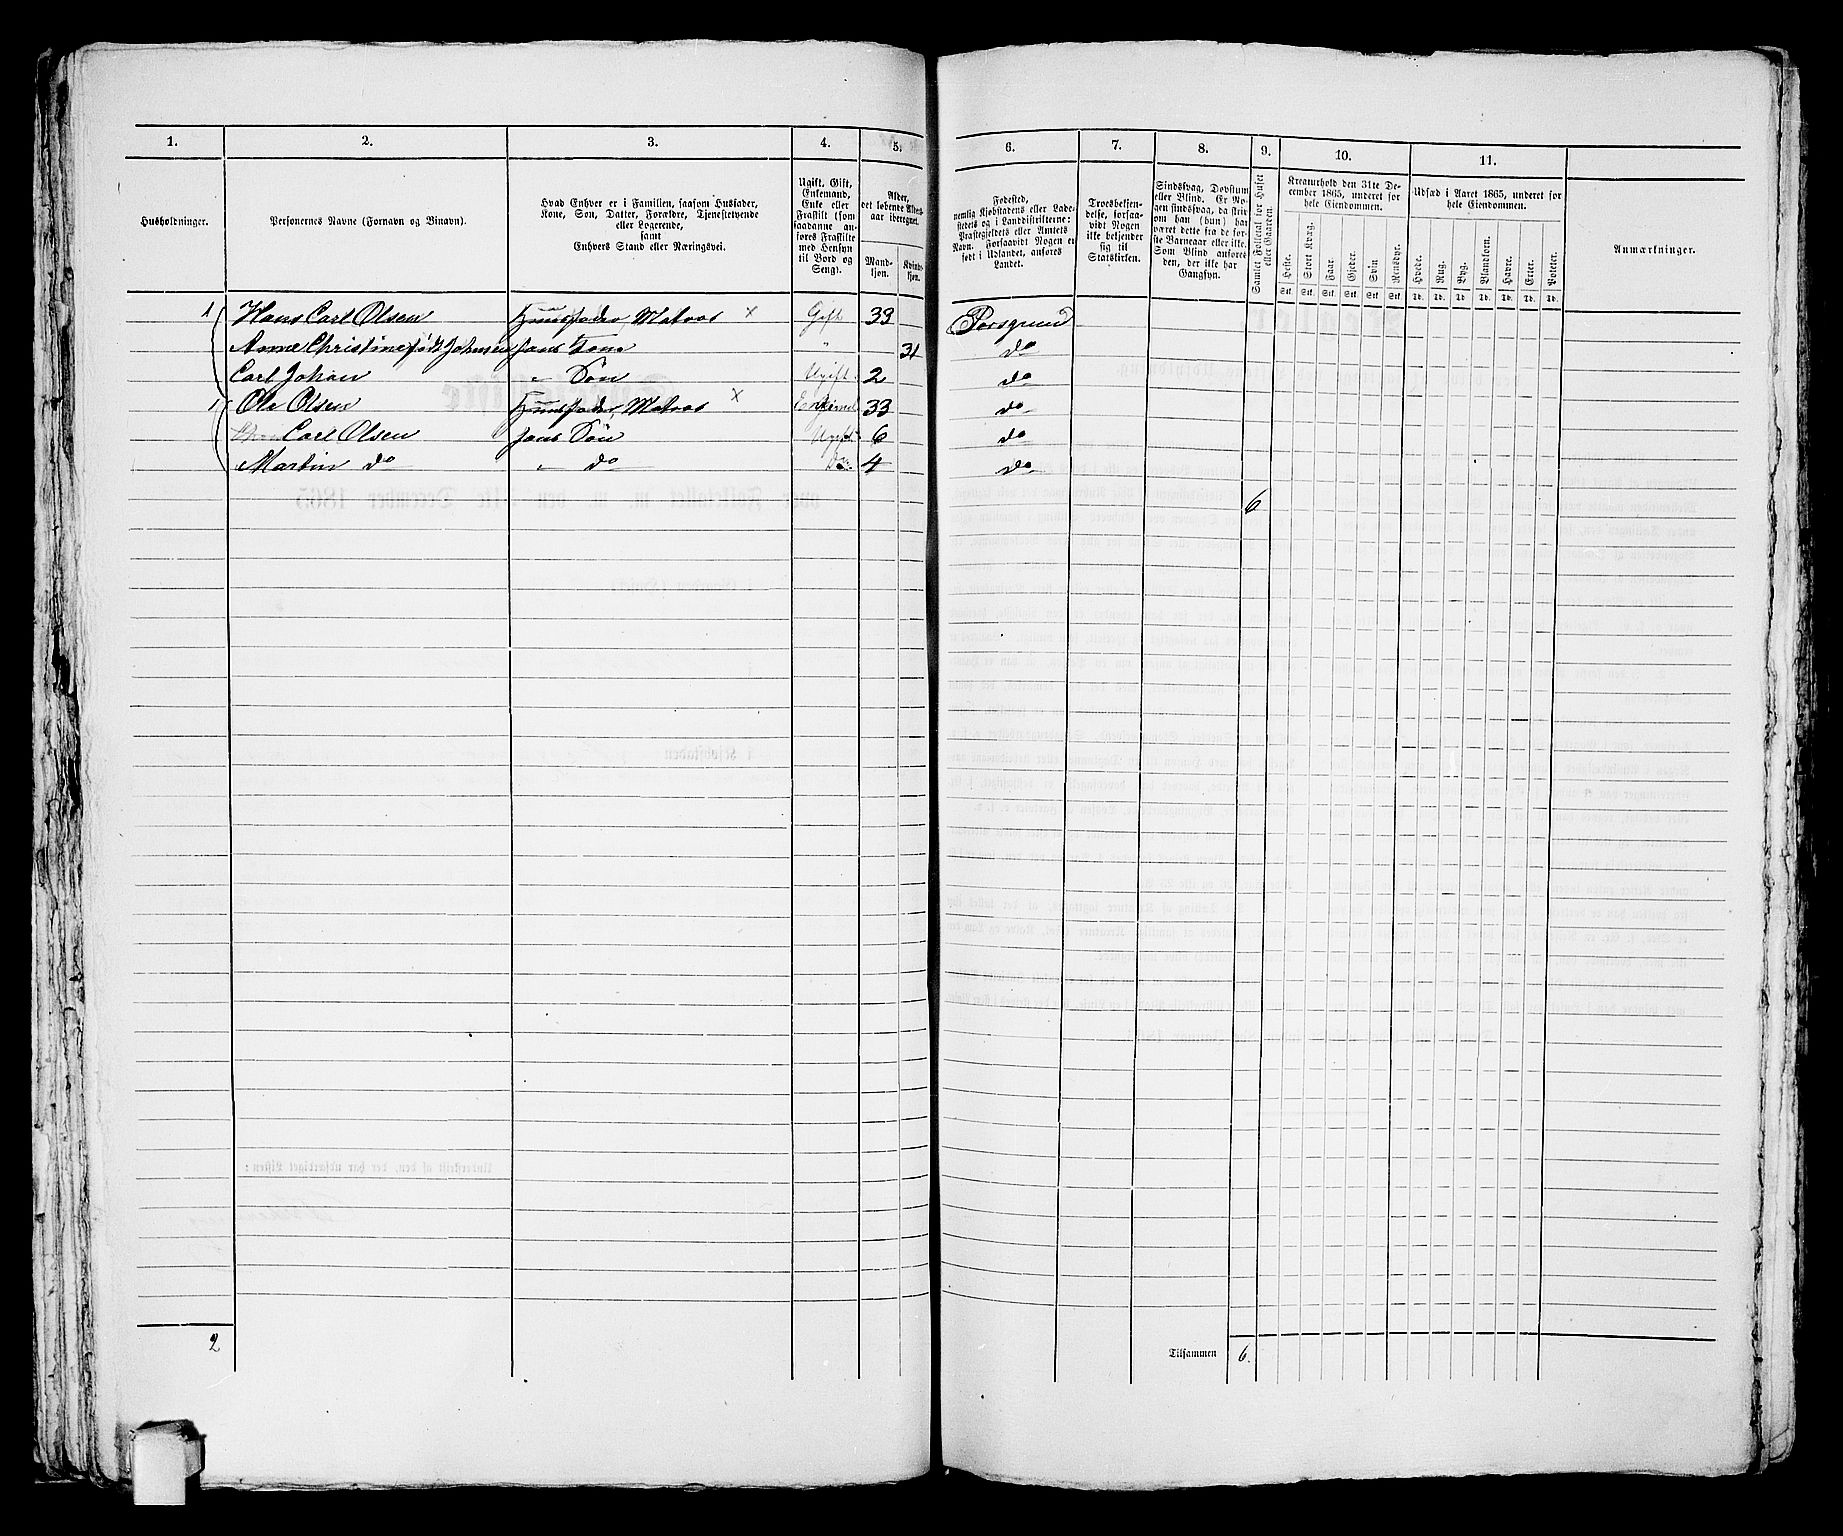 1. 2. 3. 4. 5. 6. 7. 8. 9. 10. 11.
Husholdninger.
Personernes Navne (Fornavn og Binavn).
Hvad Enhver er i Familien, saasom Husfader,
Kone, Søn, Datter, Forældre, Tjenestetyende
eller Logerende,
samt
Enhvers Stand eller Næringsvei.
Ugift, Gift,
Enkemand,
Enke eller
Fraskilt (som
saadanne an-
føres Fraskilte
med Hensyn
til Bord og
Seng).
Alder,
det løbende Alders-
aar iberegnet.
Mand-
kjøn.
Kvind-
kjøn.
Fødested,
nemlig Kjøbstadens eller Lade-
stedets og i Landdistrikterne:
Præstegjeldets eller Amtets
Navn. Forsaavidt Nogen er
født i Udlandet, anføres
Landet.
Troesbekjen-
delse, forsaa-
vidt Nogen
ikke bekjender
sig til
Statskirken.
Sindssvag, Døvstum
eller Blind. Er No-
gen sindssvag, da skriv
om han (hun) har
været dette fra de før-
ste Barneaar eller ikke.
Som Blind anføres
den, der ikke har
Gangsyn.
Samlet Folketal for Huset
eller Gaarden.
Kreaturhold den 31te De-
cember 1865, underet for
hele Eiendommen.
Heste. Stort Kvæg. Faar. Gjeder. Svin. Rensdyr.
Stk. Stk. Stk. Stk. Stk. Stk.
Udsæd i Aaret 1865, underet for
hele Eiendommen.
Hvede. Rug. Byg. Blandkorn. Havre. Erter. Poteter.
Td. Td. Td. Td. Td. Td. Td.
Anmærkninger.
1 Hans Carl Olsen Huusfader, Matros x Gift 33 Porsgrund
Anne Christine født Johnsen hans Kone " 31 do
Carl Johan " Søn Ugift 2 do
1 Ole Olsen Huusfader, Matros x Enkemd 33 do
Carl Olsen hans Søn Ugift 6 do
Martin do " do do 4 do
6
2
Tilsammen 6.